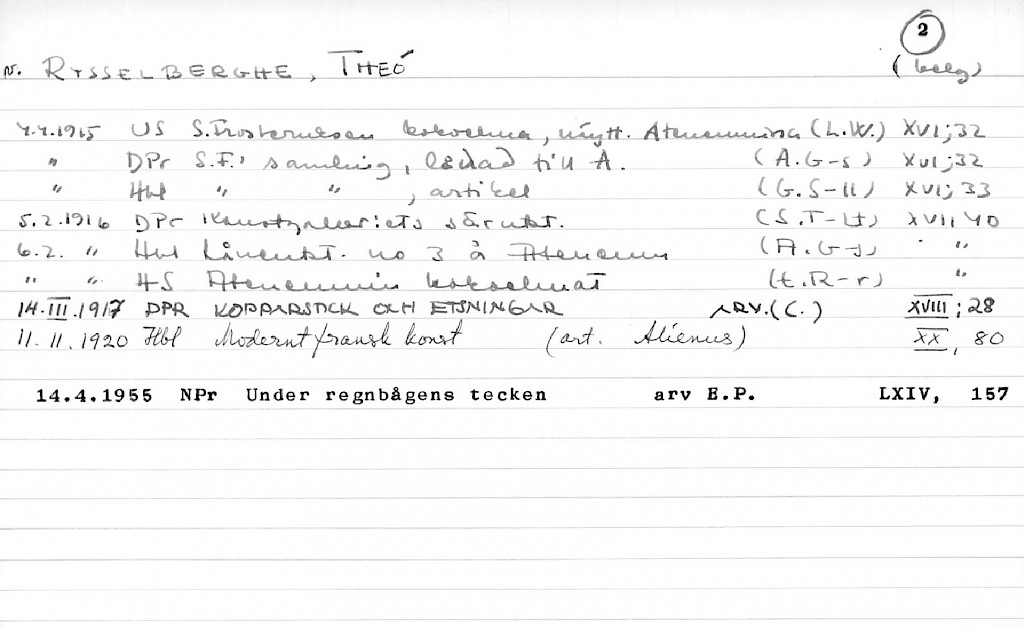 2
v. RYSSELBERGHE, THEÓ (belg)
4.4.1915 US S. Frosteruksen kokoelma, näytt. Ateneumissa (L.W.) XVI;32
" DPr S.F:s samling, lånad till A. (A.G-s) XVI;32
" Hbl " " , artikel (G.S-ll) XVI;33
5.2.1916 DPr Konstgalleriets särutst. (S.T-lt) XVII 40
6.2. " Hbl Lånutst. no 3 å Ateneum (A.G-s) "
" " HS Ateneumin kokoelmat (t.R-r) "
14.III.1917 DPR KOPPARSTICK OCH ETSNINGAR ARV.(C.) XVIII;28
11.11.1920 Hbl Modernt fransk konst (art. Alienus) XX, 80
14.4.1955 NPr Under regnbågens tecken arv E.P. LXIV, 157